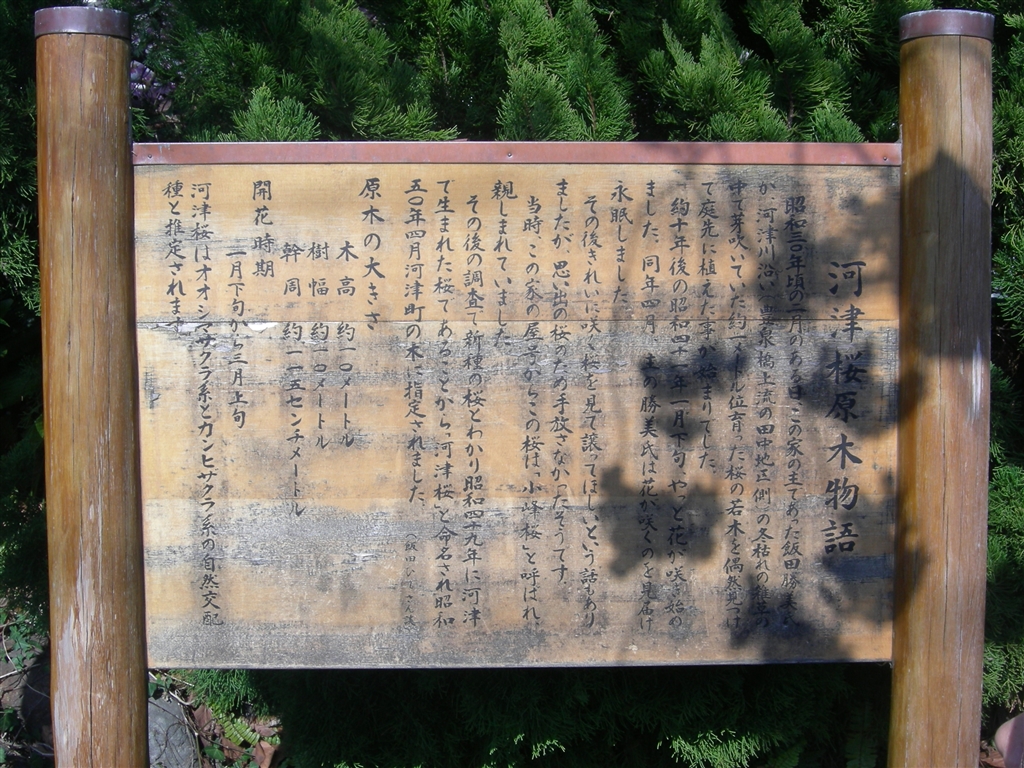 河津桜原木物語
昭和三〇年頃の二月のある日この家の主であった飯田勝美氏
が、河津川沿い(豊泉橋上流の田中地区側)の冬枯れの雑草の
中で芽吹いていた約一メートル位育った桜の若木を偶然見つけ
て庭先に植えた事が始まりでした。
約十年後の昭和四十一年一月下旬、やっと花が咲き始め
ました。同年四月 主の勝美氏は花が咲くのを見届け
永眠しました。
その後きれいに咲く桜を見て譲ってほしいという話もあり
ましたが、思い出の桜のため手放さなかったそうです。
当時、この家の屋号からこの桜は「小峰桜」と呼ばれ、
親しまれていました。
その後の調査で新種の桜とわかり昭和四十九年に河津
で生まれた桜であることから「河津桜」と命名され昭和
五〇年四月河津町の木に指定されました。
さん談)
原木の大きさ
木高 約一〇メートル
樹幅 約一〇メートル
幹周 約一一五センチメートル
開花時期
一月下旬から三月上旬
河津桜はオオシマザクラ系とカンヒザクラ系の自然交配
種と推定されます。